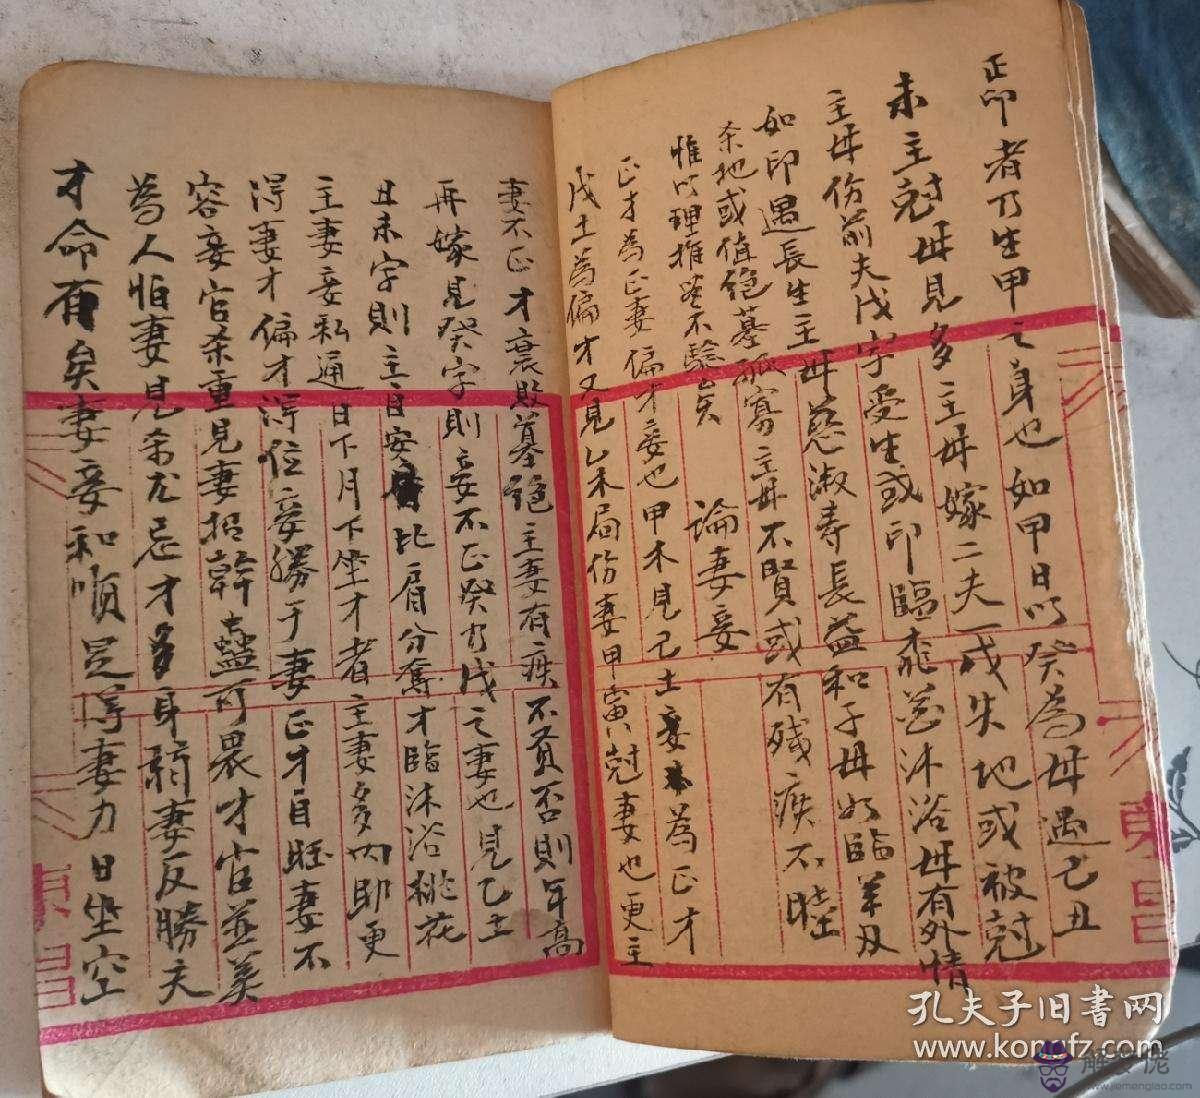 正印者乃生甲之身也如甲日以癸為母遇己丑
未主尅母見多主母嫁二夫一或失地或被尅
主母伤前夫戊字受生或印臨桃花沐浴母有外情
如印遇長生主母慈淑寿長益和子母如臨羊刃
杀地或值絕墓孤寡主母不賢或有殘疾不睦
惟以理推無不驗矣
論妻妾
正才為正妻偏才妾也甲木見己土妾為正才
戊土為偏才又見乙未局伤妻甲寅尅妻也更主
妻不正才衰敗墓絕主妻有疾不賢否則年高
再嫁見癸字則妾不正癸乃戊之妻也見乙土
丑未字則主自安比肩分奪才臨沐浴桃花
主妻妾私通日下月下坐才者主妻多內助更
得妻才偏才得位妾勝于妻正才自旺妻不
容妾官杀重見妻招幹蠱可畏才官並美
為人怕妻見杀尤忌才多身弱妻反勝夫
才命有矣妻妾和順足得妻力日坐空
東昌
東昌
孔夫子旧书网
www.kongfz.com
解夢佬
www.jiemenglao.com